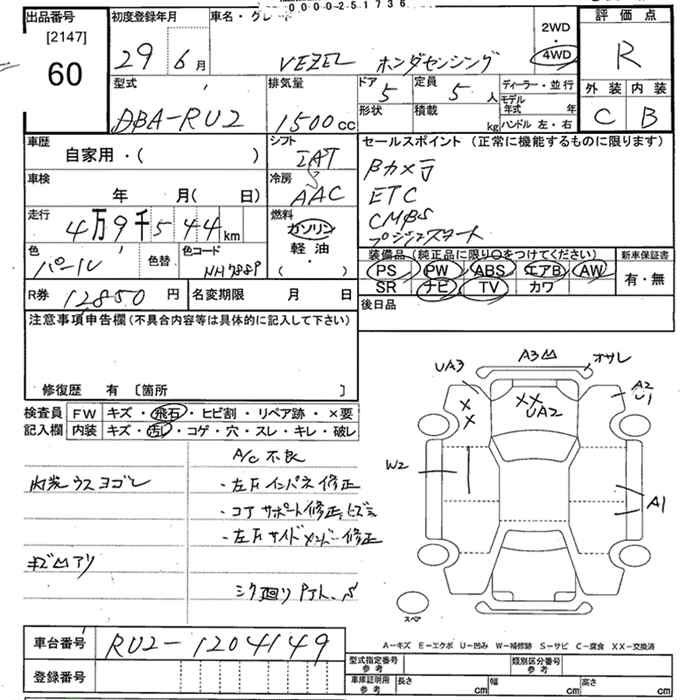 0000251736
出品番号
[2147]
60
初度登録年月
29年 6月
車名・グレード
VEZEL ホンダセンシング
2WD
4WD
評価点
R
外装 内装
C B
型式
DBA-RU2
排気量
1500cc
ドア
5
形状
定員
5人
積載
kg
ディーラー・並行
モデル年式 年
ハンドル 左・右
車歴
自家用・( )
車検
年 月( 日)
走行
4万9千544km
色
パール
色替
色コード
NH788P
シフト
IAT
冷房
AAC
燃料
ガソリン
軽油
( ・ )
セールスポイント (正常に機能するものに限ります)
Bカメラ
ETC
CMBS
プッシュスタート
装備品(純正品に限り○をつけてください)
PS PW ABS エアB AW
SR ナビ TV カワ
新車保証書
有・無
R券 12850円
名変期限 月 日
後日品
注意事項申告欄(不具合内容等は具体的に記入して下さい)
修復歴 有〔箇所 〕
検査員記入欄
FW キズ・飛石・ヒビ割・リペア跡・×要
内装 キズ・汚レ・コゲ・穴・スレ・キレ・破レ
内装ウスヨゴレ
キズ凹アリ
A/C不良
・左Fインパネ修正
・コアサポート修正、ヒズミ
・左Fサイドメンバー修正
UA3
A3凹
オサレ
A2
U1
XX
UA2
X
X
W2
A1
スペア
車台番号
RU2-1204149
登録番号
A−キズ E−エクボ U−凹み W−補修跡 S−サビ C−腐食 XX−交換済
型式指定番号
参考
類別区分番号
参考
車庫証明用
参考
長さ cm
幅 cm
高さ cm